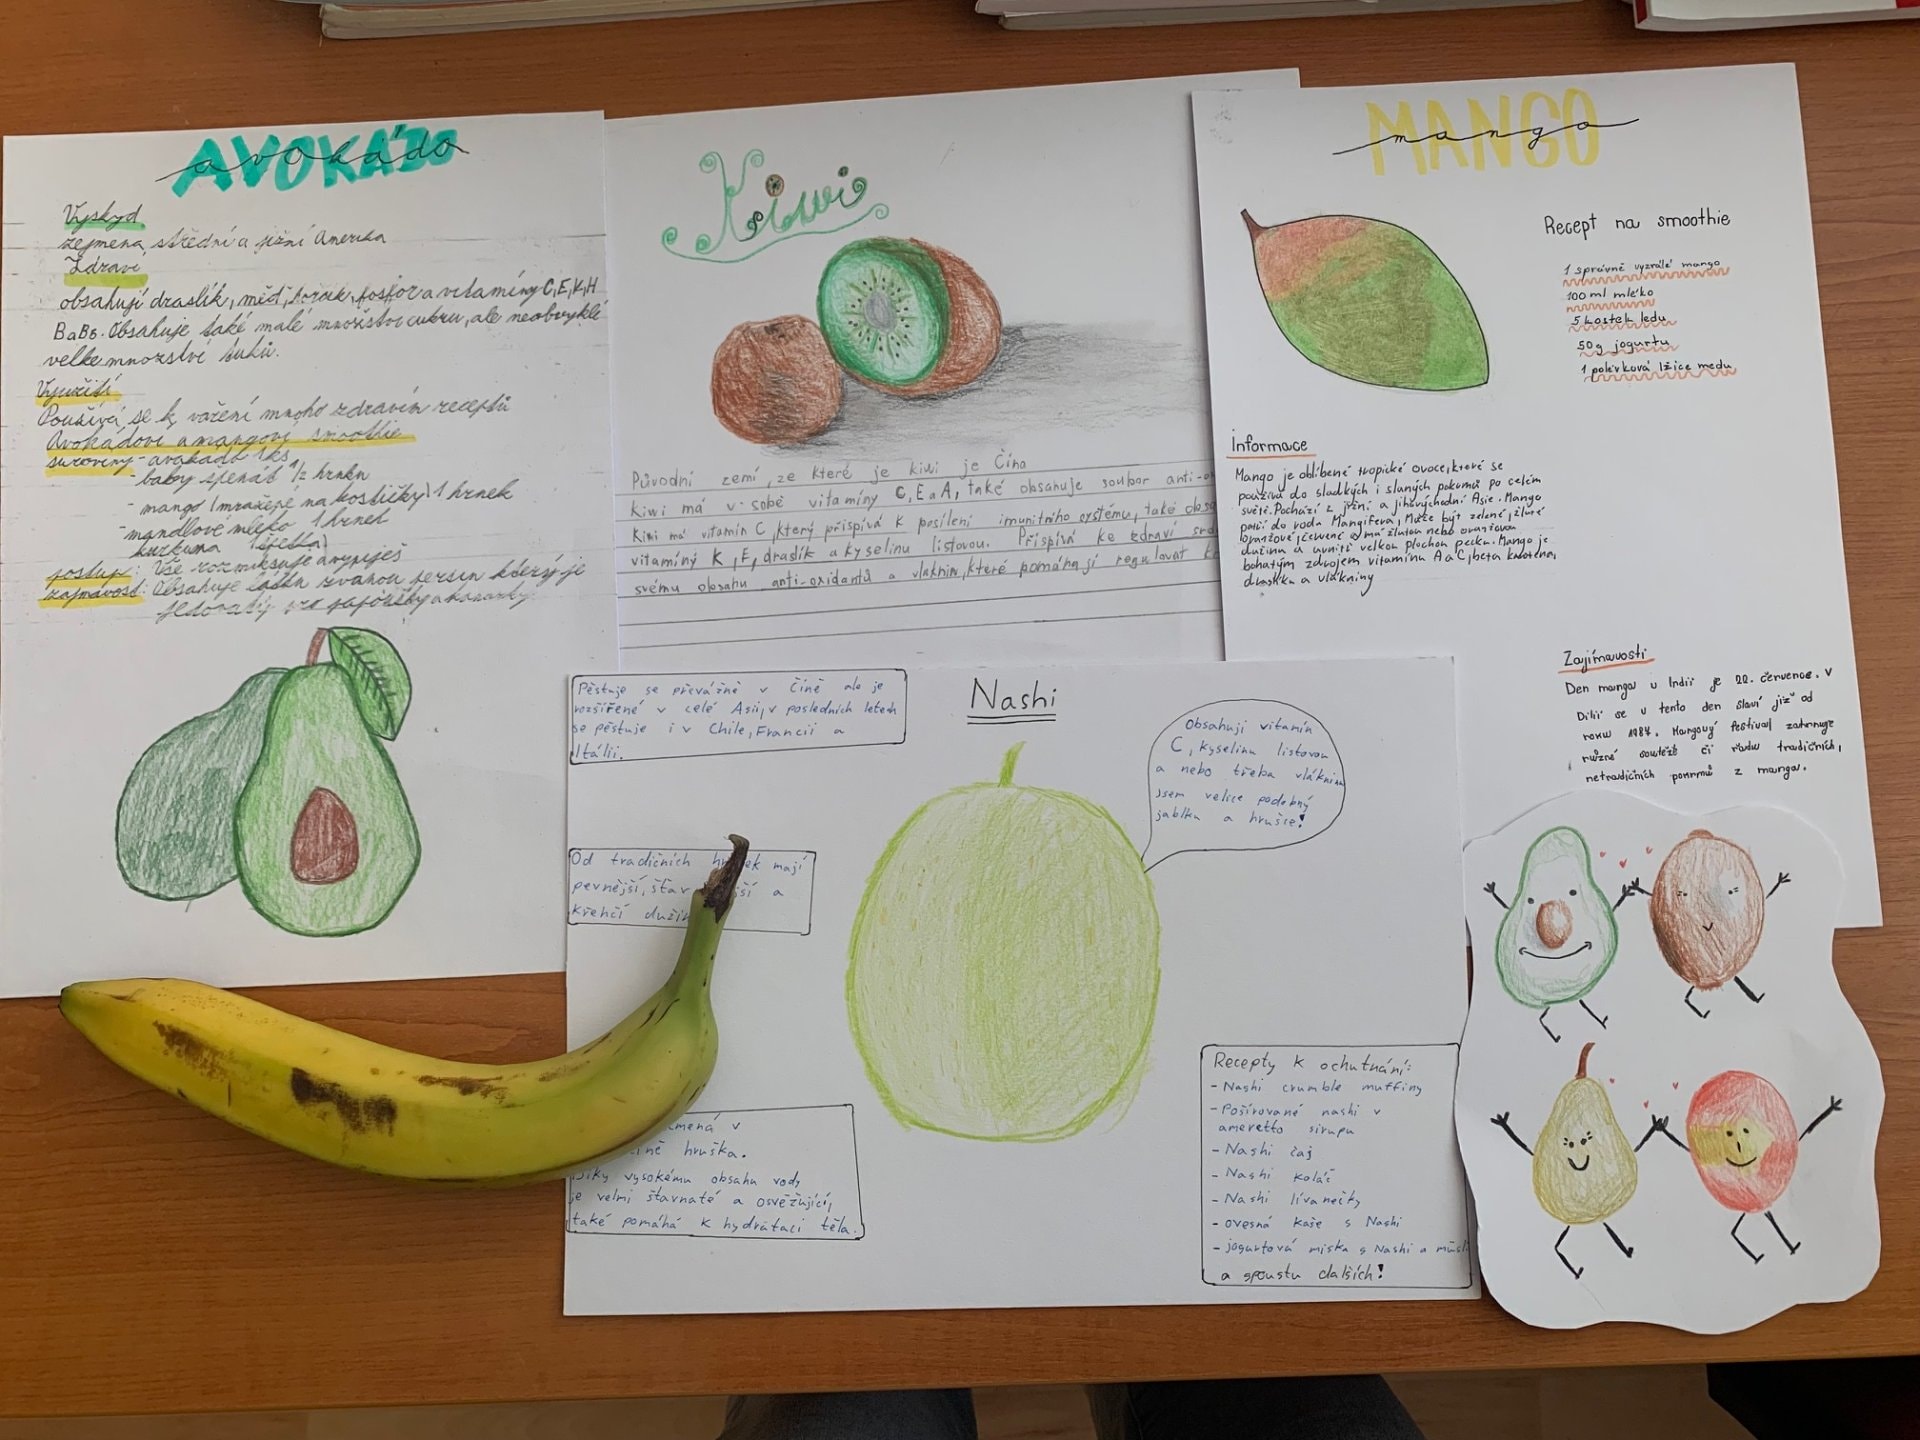 AVOKÁDO
avokádo
Výskyd
zejmena střední a jižní Amerika
Zdraví
obsahují draslík, měď, hořčík, fosfor a vitamíny C, E, K, H
B a B6. Obsahuje také malé množství cukru, ale neobvyklé
velke množství tuků.
Využití
Používá se k vaření mnoho zdravím receptů
Avokádové a mangové smoothie
suroviny - avokádo 1ks
- baby špenát 1/2 hrnku
- mango (mražené na kostičky) 1 hrnek
- mandlové mléko 1 hrnek
kurkuma
postup: Vše rozmixuje a vypiješ
zajímavost: Obsahuje látku zvanou persin který je
jedovatý pro
Kiwi
Původní zemí, ze které je kiwi je Čína
Kiwi má v sobě vitamíny C, E a A, také obsahuje soubor anti-o
Kiwi má vitamín C, který přispívá k posílení imunitního systému, také obsa
vitamíny K, E, draslík a kyselinu listovou. Přispívá ke zdraví srd
svému obsahu anti-oxidantů a vláknin, které pomáhají regulovat k
MANGO
mango
Recept na smoothie
1 správně vyzrálé mango
100 ml mléko
5 kostek ledu
50g jogurtu
1 polévková lžíce medu
Informace
Mango je oblíbené tropické ovoce, které se
používá do sladkých i slaných pokrmů po celém
světě. Pochází z jižní a jihovýchodní Asie. Mango
patří do rodu Mangifera, Může být zelené, žluté
oranžové, červené a má žlutou nebo oranžovou
dužinu a uvnitř velkou plochou pecku. Mango je
bohatým zdrojem vitamínu A a C, beta karotenu,
draslíku a vlákniny
Zajímavosti
Den manga v Indii je 22. července. V
Dilií se v tento den slaví již od
roku 1987. Mangový festival zahrnuje
různé soutěže či řadu tradičních,
netradičních pokrmů z manga.
Nashi
Pěstuje se převážně v Číně ale je
rozšířené v celé Asii, v posledních letech
se pěstuje i v Chile, Francii a
Itálii.
Obsahuji vitamín
C, kyselinu listovou
a nebo třeba vlákninu
jsem velice podobný
jablku a hrušce!
Od tradičních hr ek mají
pevnější, šťav jší a
křehčí dužin
mená v
ině hruška.
Díky vysokému obsahu vody
je velmi šťavnaté a osvěžující,
také pomáhá k hydrataci těla.
Recepty k ochutnání:
- Nashi crumble muffiny
- Pošírované nashi v
ameretto sirupu
- Nashi čaj
- Nashi koláč
- Nashi lívanečky
- ovesná kaše s Nashi
- jogurtová miska s Nashi a müsli
a spoustu dalších!